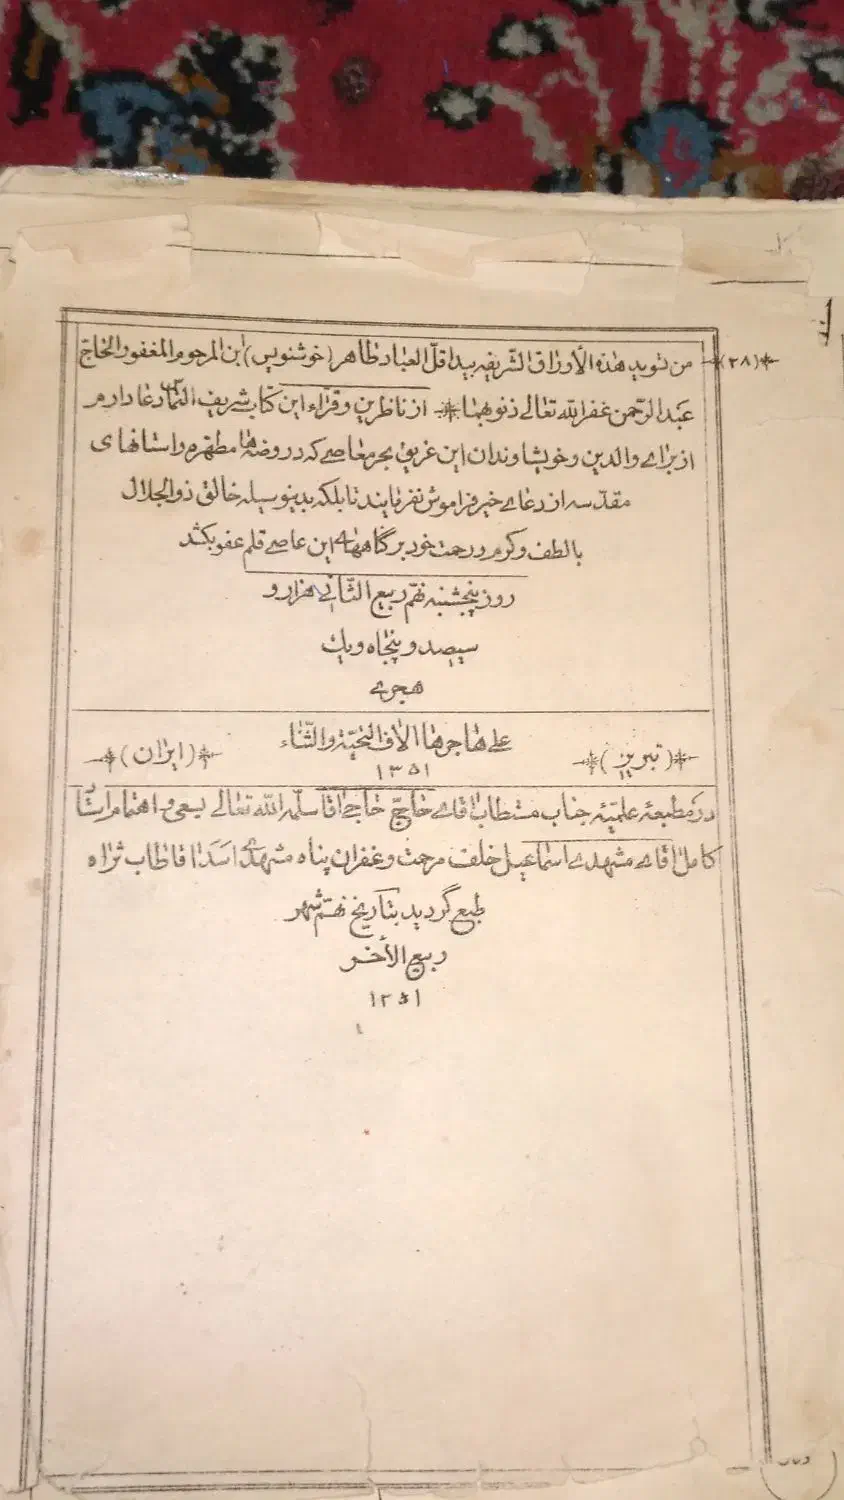 من تسوید هذه الأوراق الشّریفه بید اقلّ العباد طاهر (خوشنویس) ابن المرحوم المغفور الحاجّ (۲۸)
عبد الرّحمن غفر الله تعالی ذنوبهما از ناظرین و قرّاء این کتاب شریف التماس دعا دارم
از برای والدین و خویشاوندان این غریق بحر معاصی که در روضهٔ‌ها مطهّره و استانهای
مقدّسه از دعای خیر فراموش نفرمایند تا بلکه بدینوسیله خالق ذو الجلال
بالطف و کرم و رحمت خود بر گناههای این عاصی قلم عفو بکشد
روز پنجشنبه نهم ربیع الثّانی هزار و
سیصد و پنجاه و یك
هجری
علی هاجرها الآف التحیّة والثّناء
(تبریز) ۱۳۵۱ (ایران)
در مطبعهٔ علمیّهٔ جناب مستطاب اقای حاجّ حاجی اقا سلّمه الله تعالی بسعی و اهتمام استاد
کامل اقای مشهدی اسماعیل خلف مرحمت و غفران پناه مشهدی اسد اقا طاب ثراه
طبع گردید بتاریخ نهم شهر
ربیع الأخر
۱۳۵۱